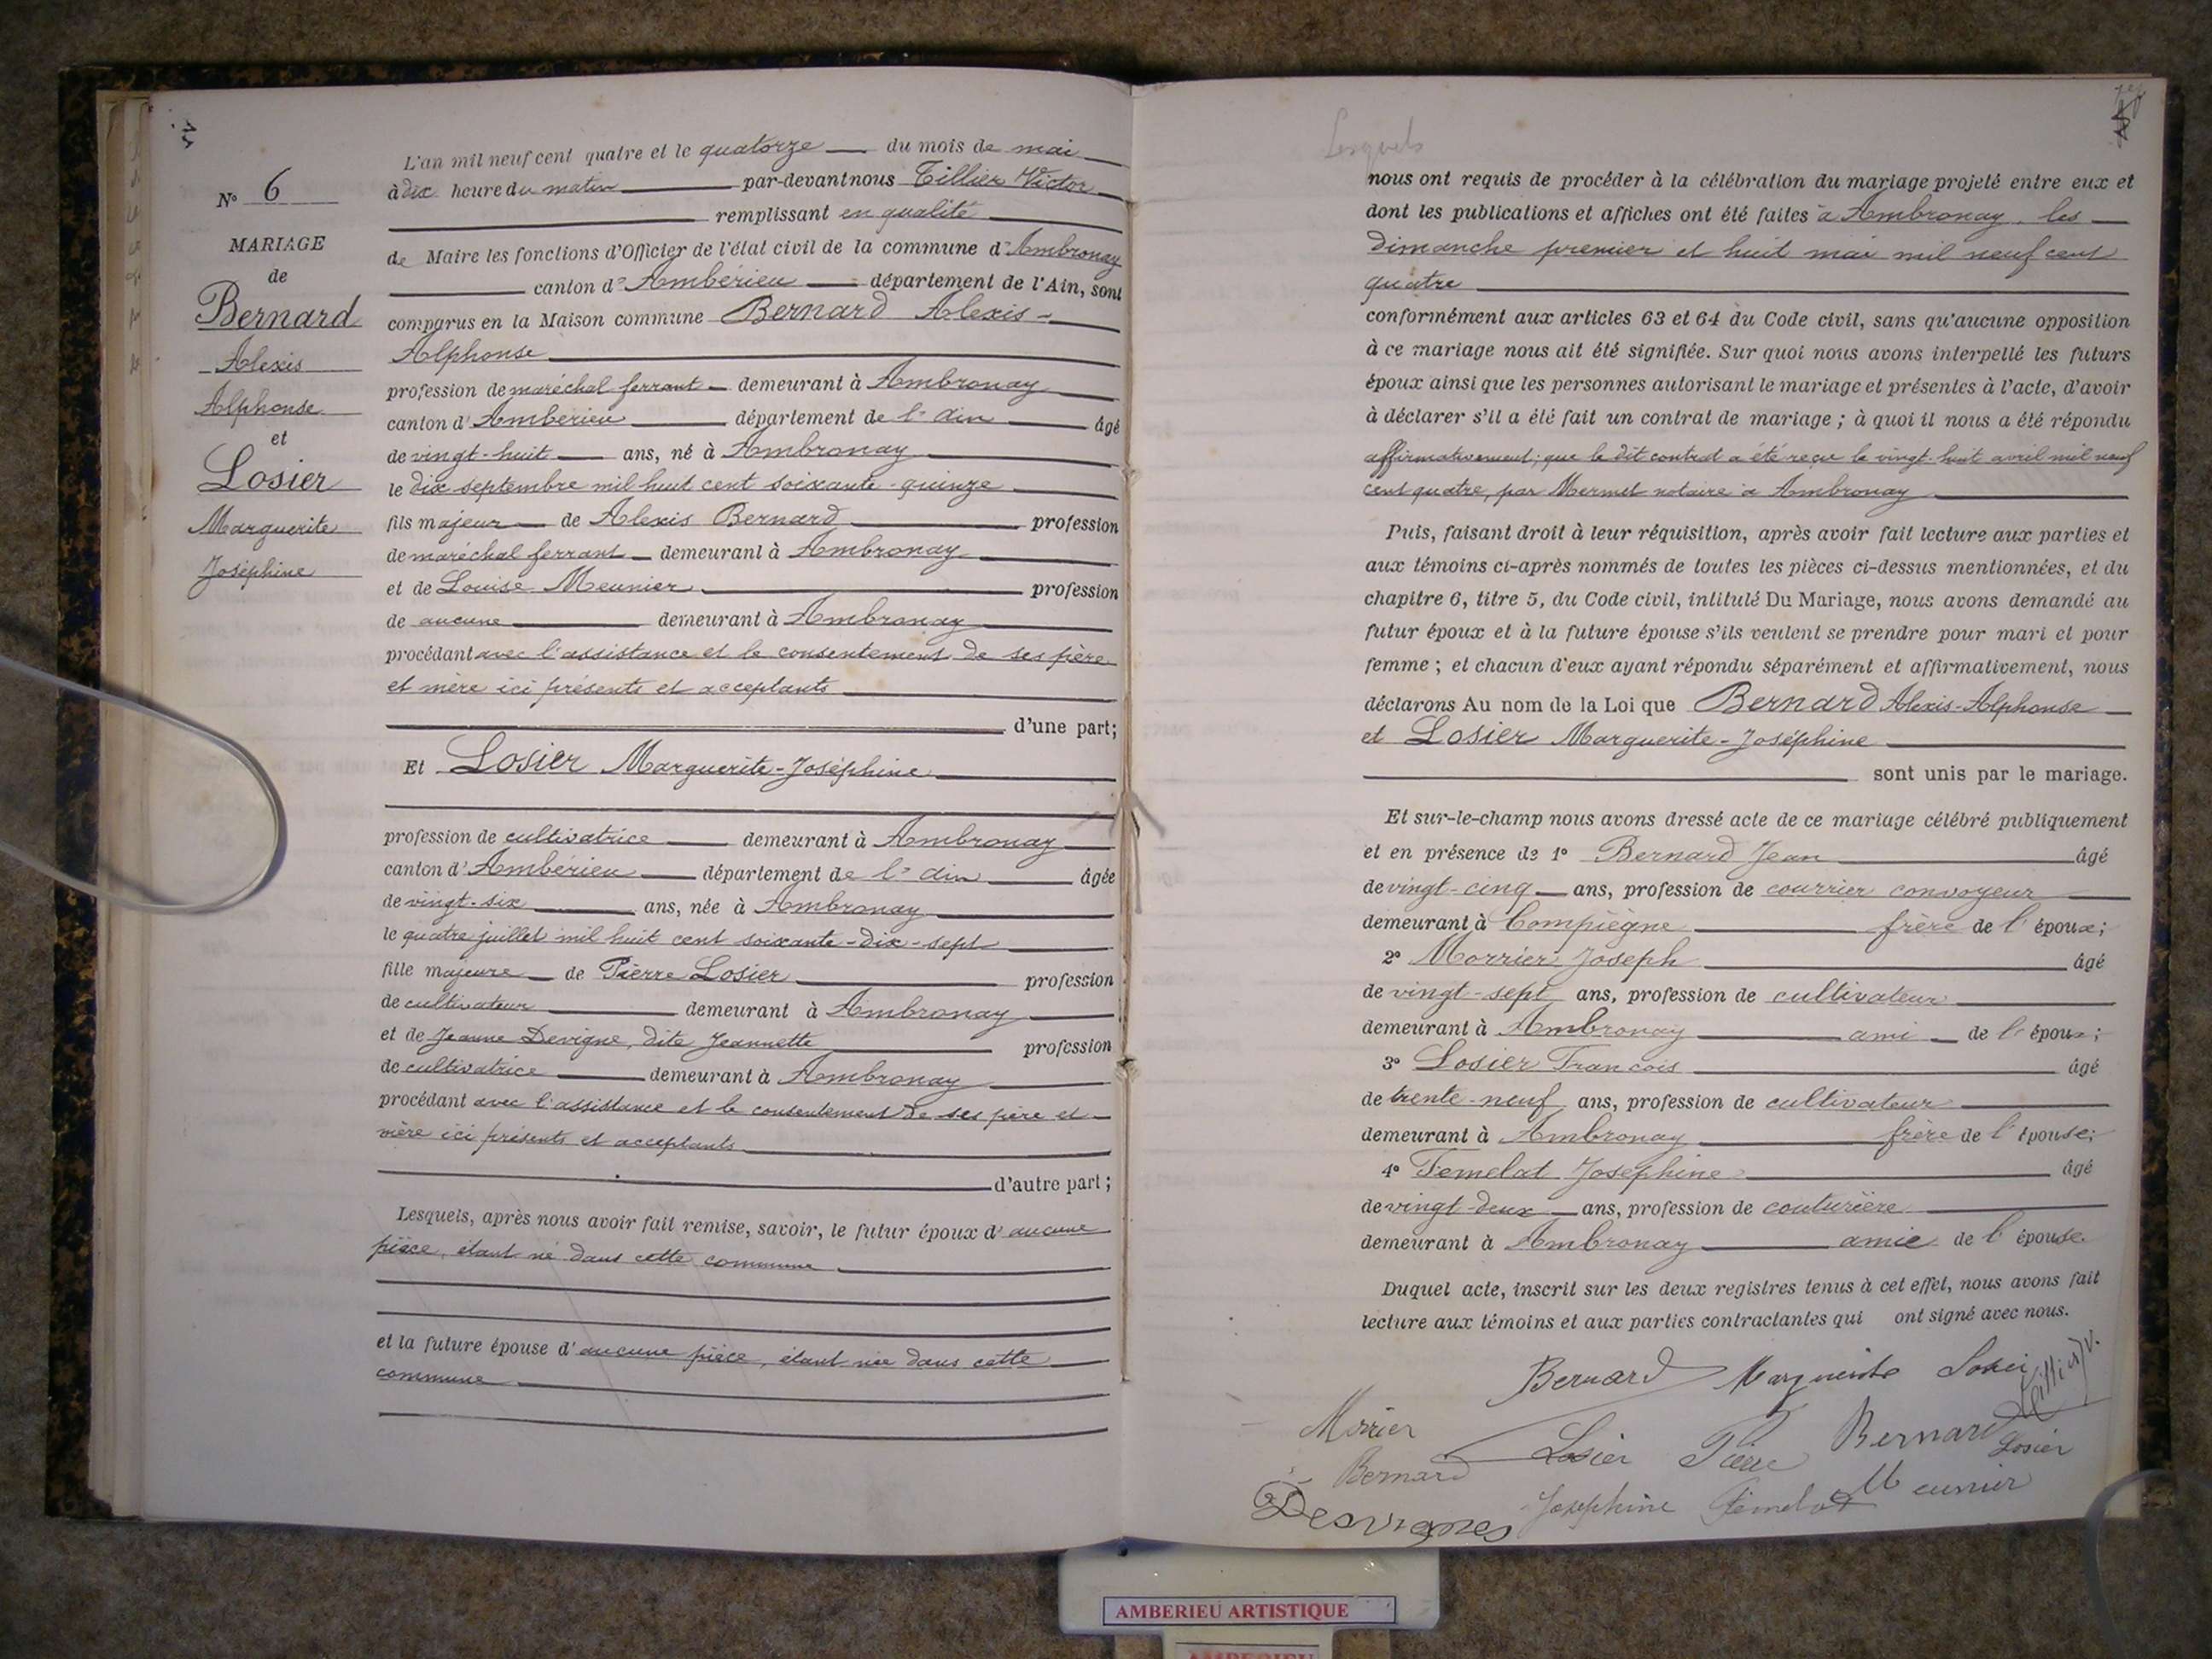 N° 6
MARIAGE
de
Bernard
Alexis
Alphonse
et
Losier
Marguerite
Joséphine
L'an mil neuf cent quatre et le quatorze du mois de mai
à dix heure du matin par-devant nous Tillier Victor
remplissant en qualité
de Maire les fonctions d'Officier de l'état civil de la commune d'Ambronay
canton d'Ambérieu département de l'Ain, sont
comparus en la Maison commune Bernard Alexis-
Alphonse
profession de maréchal ferrant demeurant à Ambronay
canton d'Ambérieu département de l'Ain âgé
de vingt-huit ans, né à Ambronay
le dix septembre mil huit cent soixante-quinze
fils majeur de Alexis Bernard profession
de maréchal ferrant demeurant à Ambronay
et de Louise Meunier profession
de aucune demeurant à Ambronay
procédant avec l'assistance et le consentement de ses père
et mère ici présents et acceptants
d'une part;
Et Losier Marguerite-Joséphine
profession de cultivatrice demeurant à Ambronay
canton d'Ambérieu département de l'Ain âgée
de vingt-six ans, née à Ambronay
le quatre juillet mil huit cent soixante-dix-sept
fille majeure de Pierre Losier profession
de cultivateur demeurant à Ambronay
et de Jeanne Devigne, dite Jeannette profession
de cultivatrice demeurant à Ambronay
procédant avec l'assistance et le consentement de ses père et
mère ici présents et acceptants
d'autre part;
Lesquels, après nous avoir fait remise, savoir, le futur époux d'aucune
pièce, étant né dans cette commune
et la future épouse d'aucune pièce, étant née dans cette
commune
Lesquels
nous ont requis de procéder à la célébration du mariage projeté entre eux et
dont les publications et affiches ont été faites à Ambronay, les
dimanche premier et huit mai mil neuf cent
quatre
conformément aux articles 63 et 64 du Code civil, sans qu'aucune opposition
à ce mariage nous ait été signifiée. Sur quoi nous avons interpellé les futurs
époux ainsi que les personnes autorisant le mariage et présentes à l'acte, d'avoir
à déclarer s'il a été fait un contrat de mariage; à quoi il nous a été répondu
affirmativement; que le dit contrat a été reçu le vingt-huit avril mil neuf
cent quatre, par Mermet notaire à Ambronay
Puis, faisant droit à leur réquisition, après avoir fait lecture aux parties et
aux témoins ci-après nommés de toutes les pièces ci-dessus mentionnées, et du
chapitre 6, titre 5, du Code civil, intitulé Du Mariage, nous avons demandé au
futur époux et à la future épouse s'ils veulent se prendre pour mari et pour
femme; et chacun d'eux ayant répondu séparément et affirmativement, nous
déclarons Au nom de la Loi que Bernard Alexis-Alphonse
et Losier Marguerite-Joséphine
sont unis par le mariage.
Et sur-le-champ nous avons dressé acte de ce mariage célébré publiquement
et en présence de 1° Bernard Jean âgé
de vingt-cinq ans, profession de courrier convoyeur
demeurant à Compiègne frère de l'époux;
2° Morrier Joseph âgé
de vingt-sept ans, profession de cultivateur
demeurant à Ambronay ami de l'époux;
3° Losier Francois âgé
de trente-neuf ans, profession de cultivateur
demeurant à Ambronay frère de l'épouse;
4° Femelat Josephine âgé
de vingt-deux ans, profession de couturière
demeurant à Ambronay amie de l'épouse.
Duquel acte, inscrit sur les deux registres tenus à cet effet, nous avons fait
lecture aux témoins et aux parties contractantes qui ont signé avec nous.
Bernard Marguerite Losier Tillier V.
Morrier Losier Pierre Bernard Losier
Bernard Josephine Femelat Meunier
Desvignes
AMBERIEU ARTISTIQUE
AMBERIEU